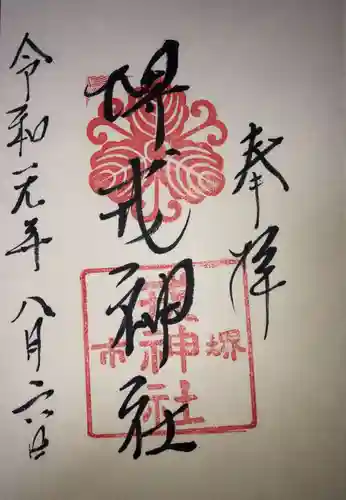 奉拝
堺戎神社
堺
市
神社
令和元年八月二六日